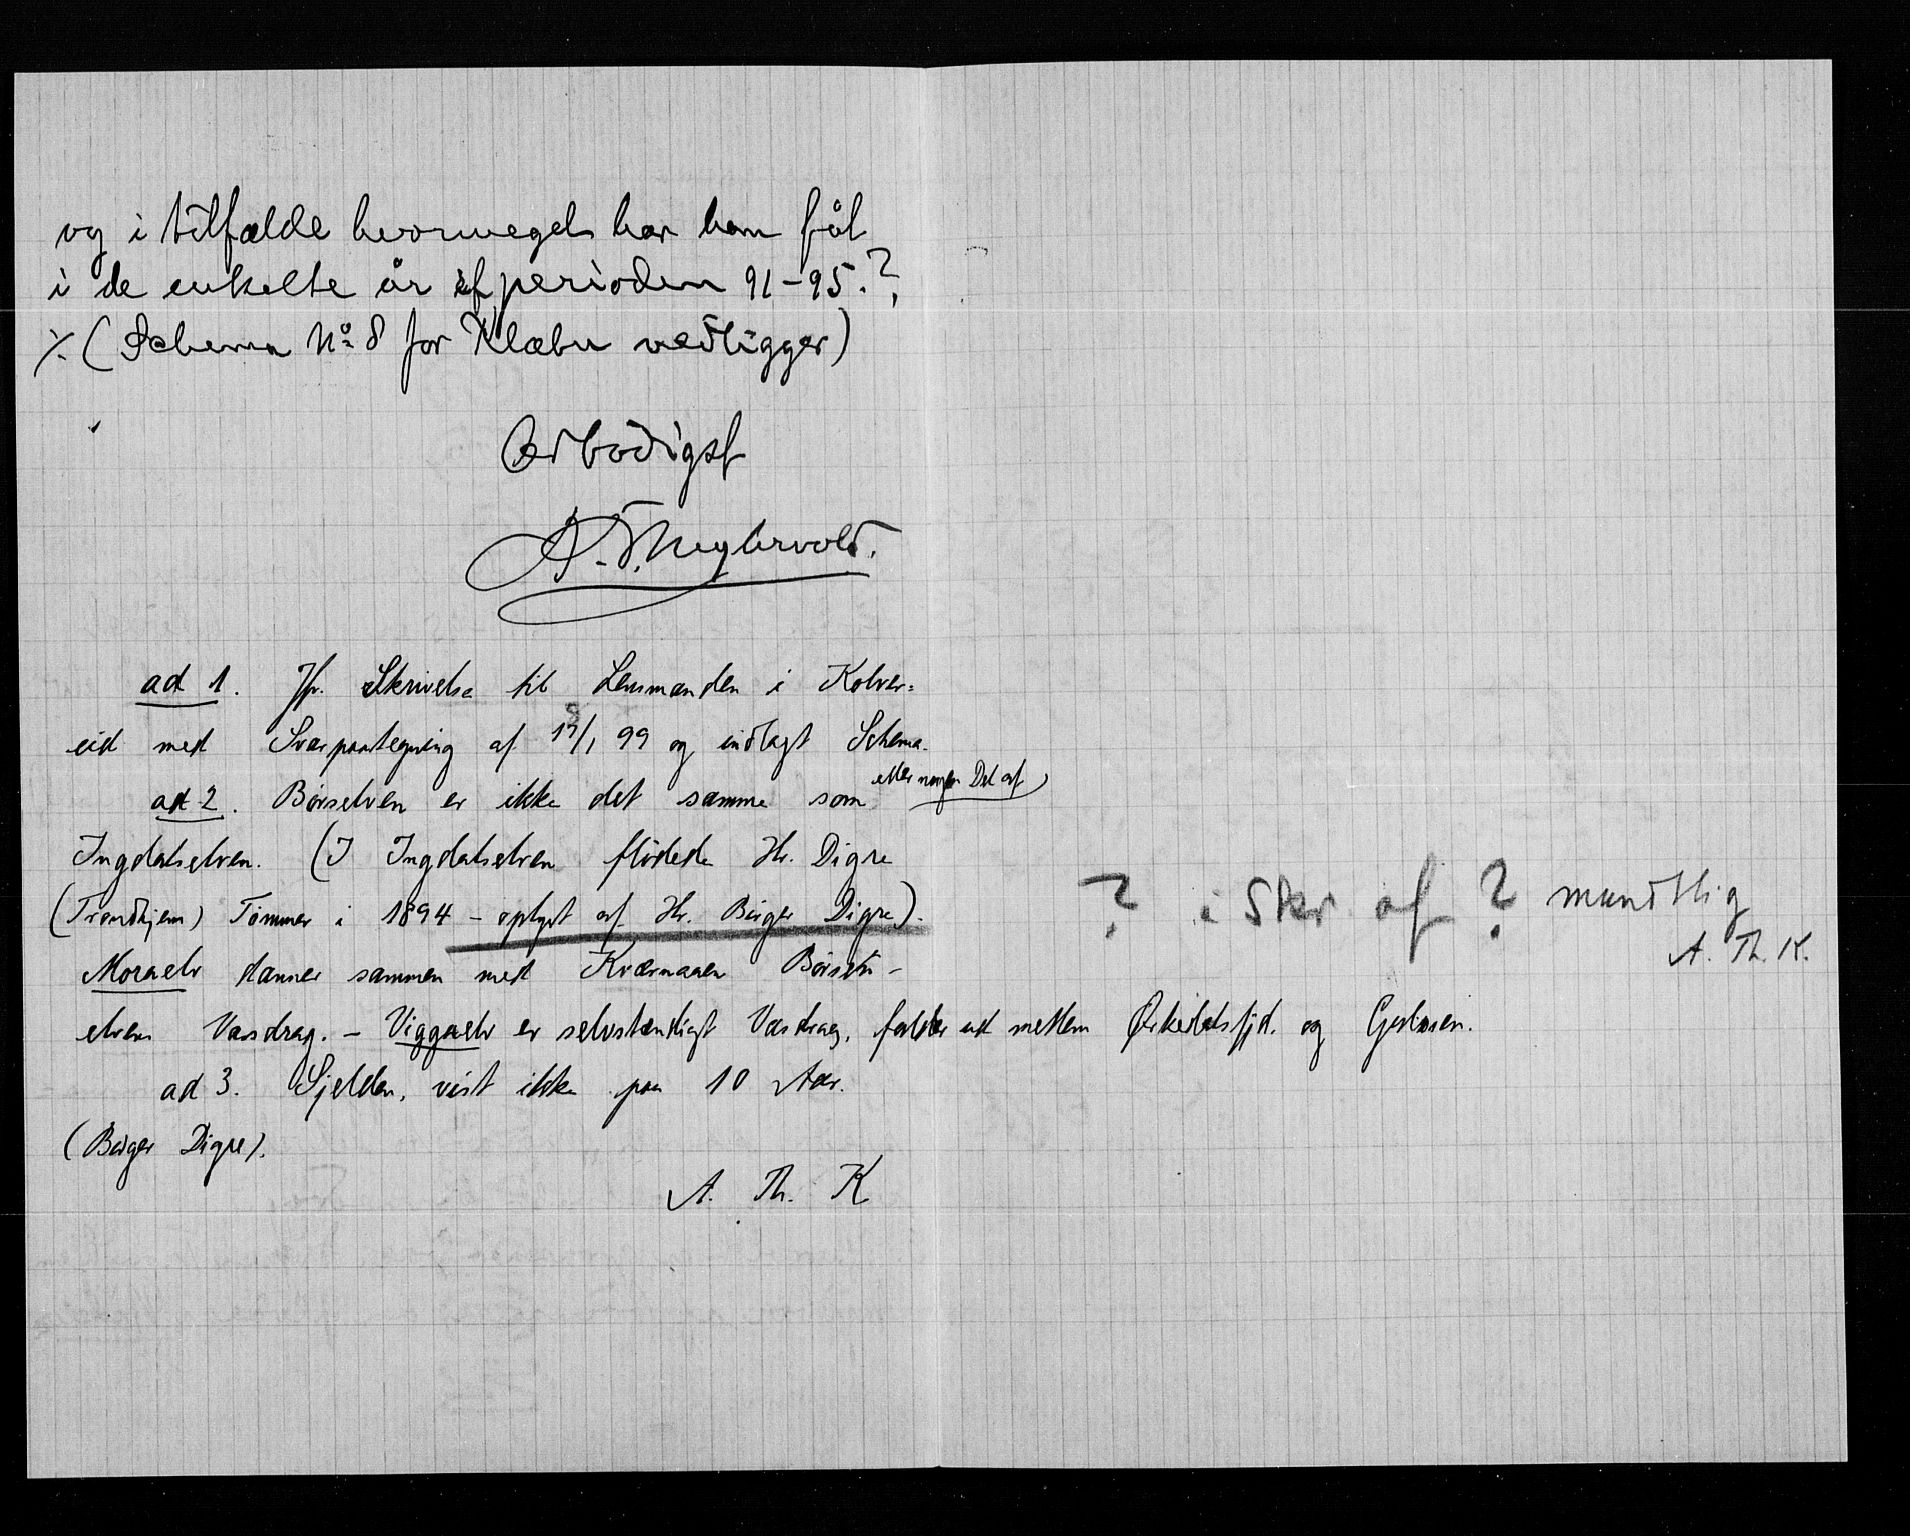 og i tilfælde hvormeget har han fåt
i de enkelte år af perioden 91-95.?
⁒ (Schema No 8 for Klæbu vedligger)
Ærbødigst
ad 1. Jfr. Skrivelse til Lensmanden i Kolver=
eid med Svarpaategning af 18/1 99 og indlagt Schema.
ad 2. Børselven er ikke det samme som eller nogen Del af
Ingdalselven. (I Ingdalselven flødede Hr. Digre
(Trondhjem) Tømmer i 1894 - oplyst af Hr. Birger Digre).
? i Skr af ? mundtlig
A. Th. K.
Moraelv danner sammen med Kværnaaen Børsen-
elvens Vasdrag. - Viggaelv er selvstændigt Vasdrag, falder ud mellem Orkedalsfjd. og Gulosen.
ad 3. Sjelden, vist ikke paa 10 Aar.
(Birger Digre).
A. Th. K